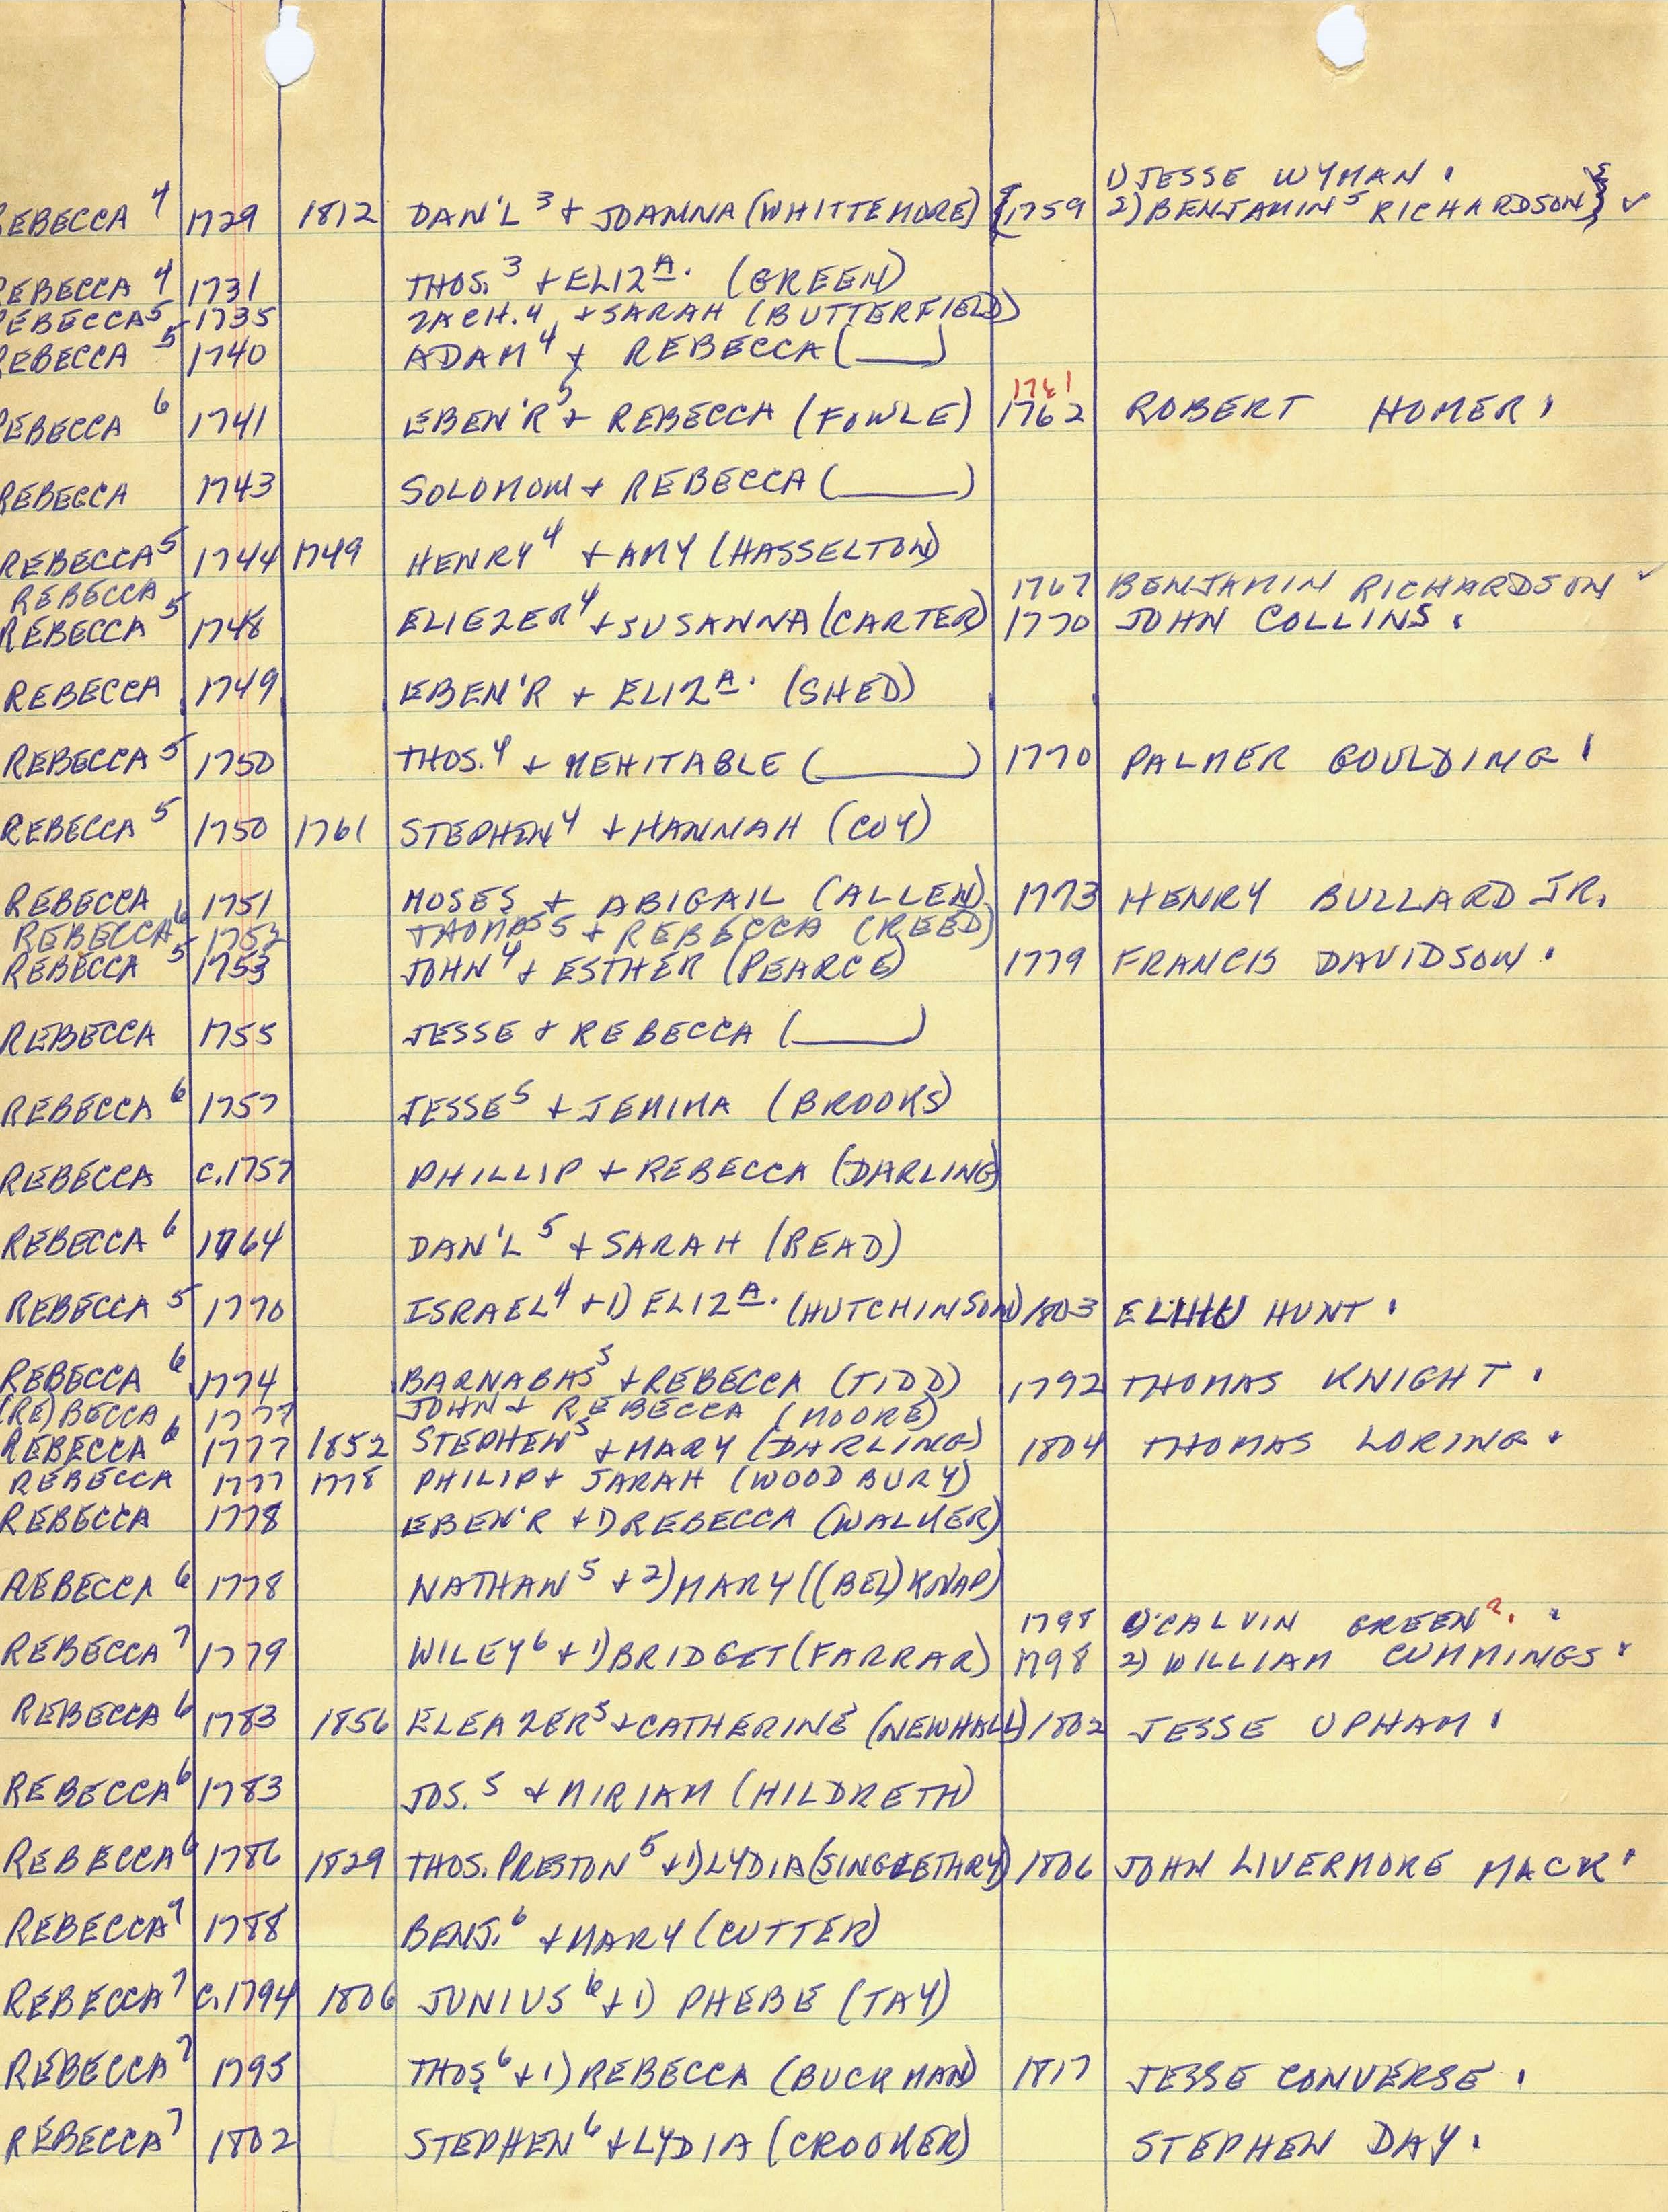 1) JESSE WYMAN .
REBECCA 4 1729 1812 DAN'L 3 + JOANNA (WHITTEMORE) {1759 2) BENJAMIN 5 RICHARDSON} ✓
REBECCA 4 1731 THOS. 3 + ELIZA. (GREEN)
REBECCA 5 1735 ZACH. 4 + SARAH (BUTTERFIELD)
REBECCA 5 1740 ADAM 4 + REBECCA (____)
1761
REBECCA 6 1741 EBEN'R 5 + REBECCA (FOWLE) 1762 ROBERT HOMER .
REBECCA 1743 SOLOMON + REBECCA (____)
REBECCA 5 1744 1749 HENRY 4 + AMY (HASSELTON)
REBECCA 1767 BENJAMIN RICHARDSON ✓
REBECCA 5 1748 ELIEZER 4 + SUSANNA (CARTER) 1770 JOHN COLLINS .
REBECCA 1749 EBEN'R + ELIZA. (SHED)
REBECCA 5 1750 THOS. 4 + MEHITABLE (____) 1770 PALMER GOULDING .
REBECCA 5 1750 1761 STEPHEN 4 + HANNAH (COY)
REBECCA 1751 MOSES + ABIGAIL (ALLEN) 1773 HENRY BULLARD JR.
REBECCA 6 1752 THOMAS 5 + REBECCA (REED)
REBECCA 5 1753 JOHN 4 + ESTHER (PEARCE) 1779 FRANCIS DAVIDSON .
REBECCA 1755 JESSE + REBECCA (____)
REBECCA 6 1757 JESSE 5 + JEMIMA (BROOKS)
REBECCA C.1757 PHILLIP + REBECCA (DARLING)
REBECCA 6 1764 DAN'L 5 + SARAH (READ)
REBECCA 5 1770 ISRAEL 4 + 1) ELIZA. (HUTCHINSON) 1803 ELIHU HUNT .
REBECCA 6 1774 BARNABAS 5 + REBECCA (TIDD) 1792 THOMAS KNIGHT .
(RE)BECCA 1777 JOHN + REBECCA (MOORE)
REBECCA 6 1777 1852 STEPHEN 5 + MARY (DARLING) 1804 THOMAS LORING .
REBECCA 1777 1778 PHILIP + SARAH (WOODBURY)
REBECCA 1778 EBEN'R + 1) REBECCA (WALKER)
REBECCA 6 1778 NATHAN 5 + 2) MARY ((BEL)KNAP)
1798 1) CALVIN GREEN ?. .
REBECCA 7 1779 WILEY 6 + 1) BRIDGET (FARRAR) 1798 2) WILLIAM CUMMINGS .
REBECCA 6 1783 1856 ELEAZER 5 + CATHERINE (NEWHALL) 1802 JESSE UPHAM .
REBECCA 6 1783 JOS. 5 + MIRIAM (HILDRETH)
REBECCA 6 1786 1829 THOS. PRESTON 5 + 1) LYDIA (SINGLETHRY) 1806 JOHN LIVERMORE MACK .
REBECCA 7 1788 BENJ. 6 + MARY (CUTTER)
REBECCA 7 C.1794 1806 JUNIUS 6 + 1) PHEBE (TAY)
REBECCA 7 1795 THOS. 6 + 1) REBECCA (BUCKMAN) 1817 JESSE CONVERSE .
REBECCA 7 1802 STEPHEN 6 + LYDIA (CROOKER) STEPHEN DAY .